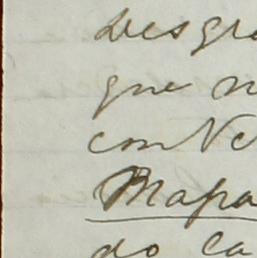 Desgra
que n
com Ve
Mapa
do ca